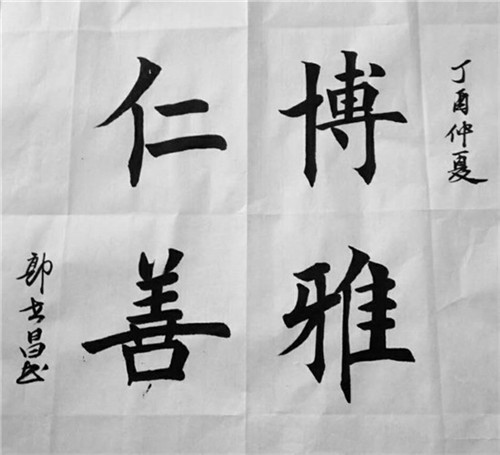 丁酉仲夏
博雅
仁善
郎士昌书